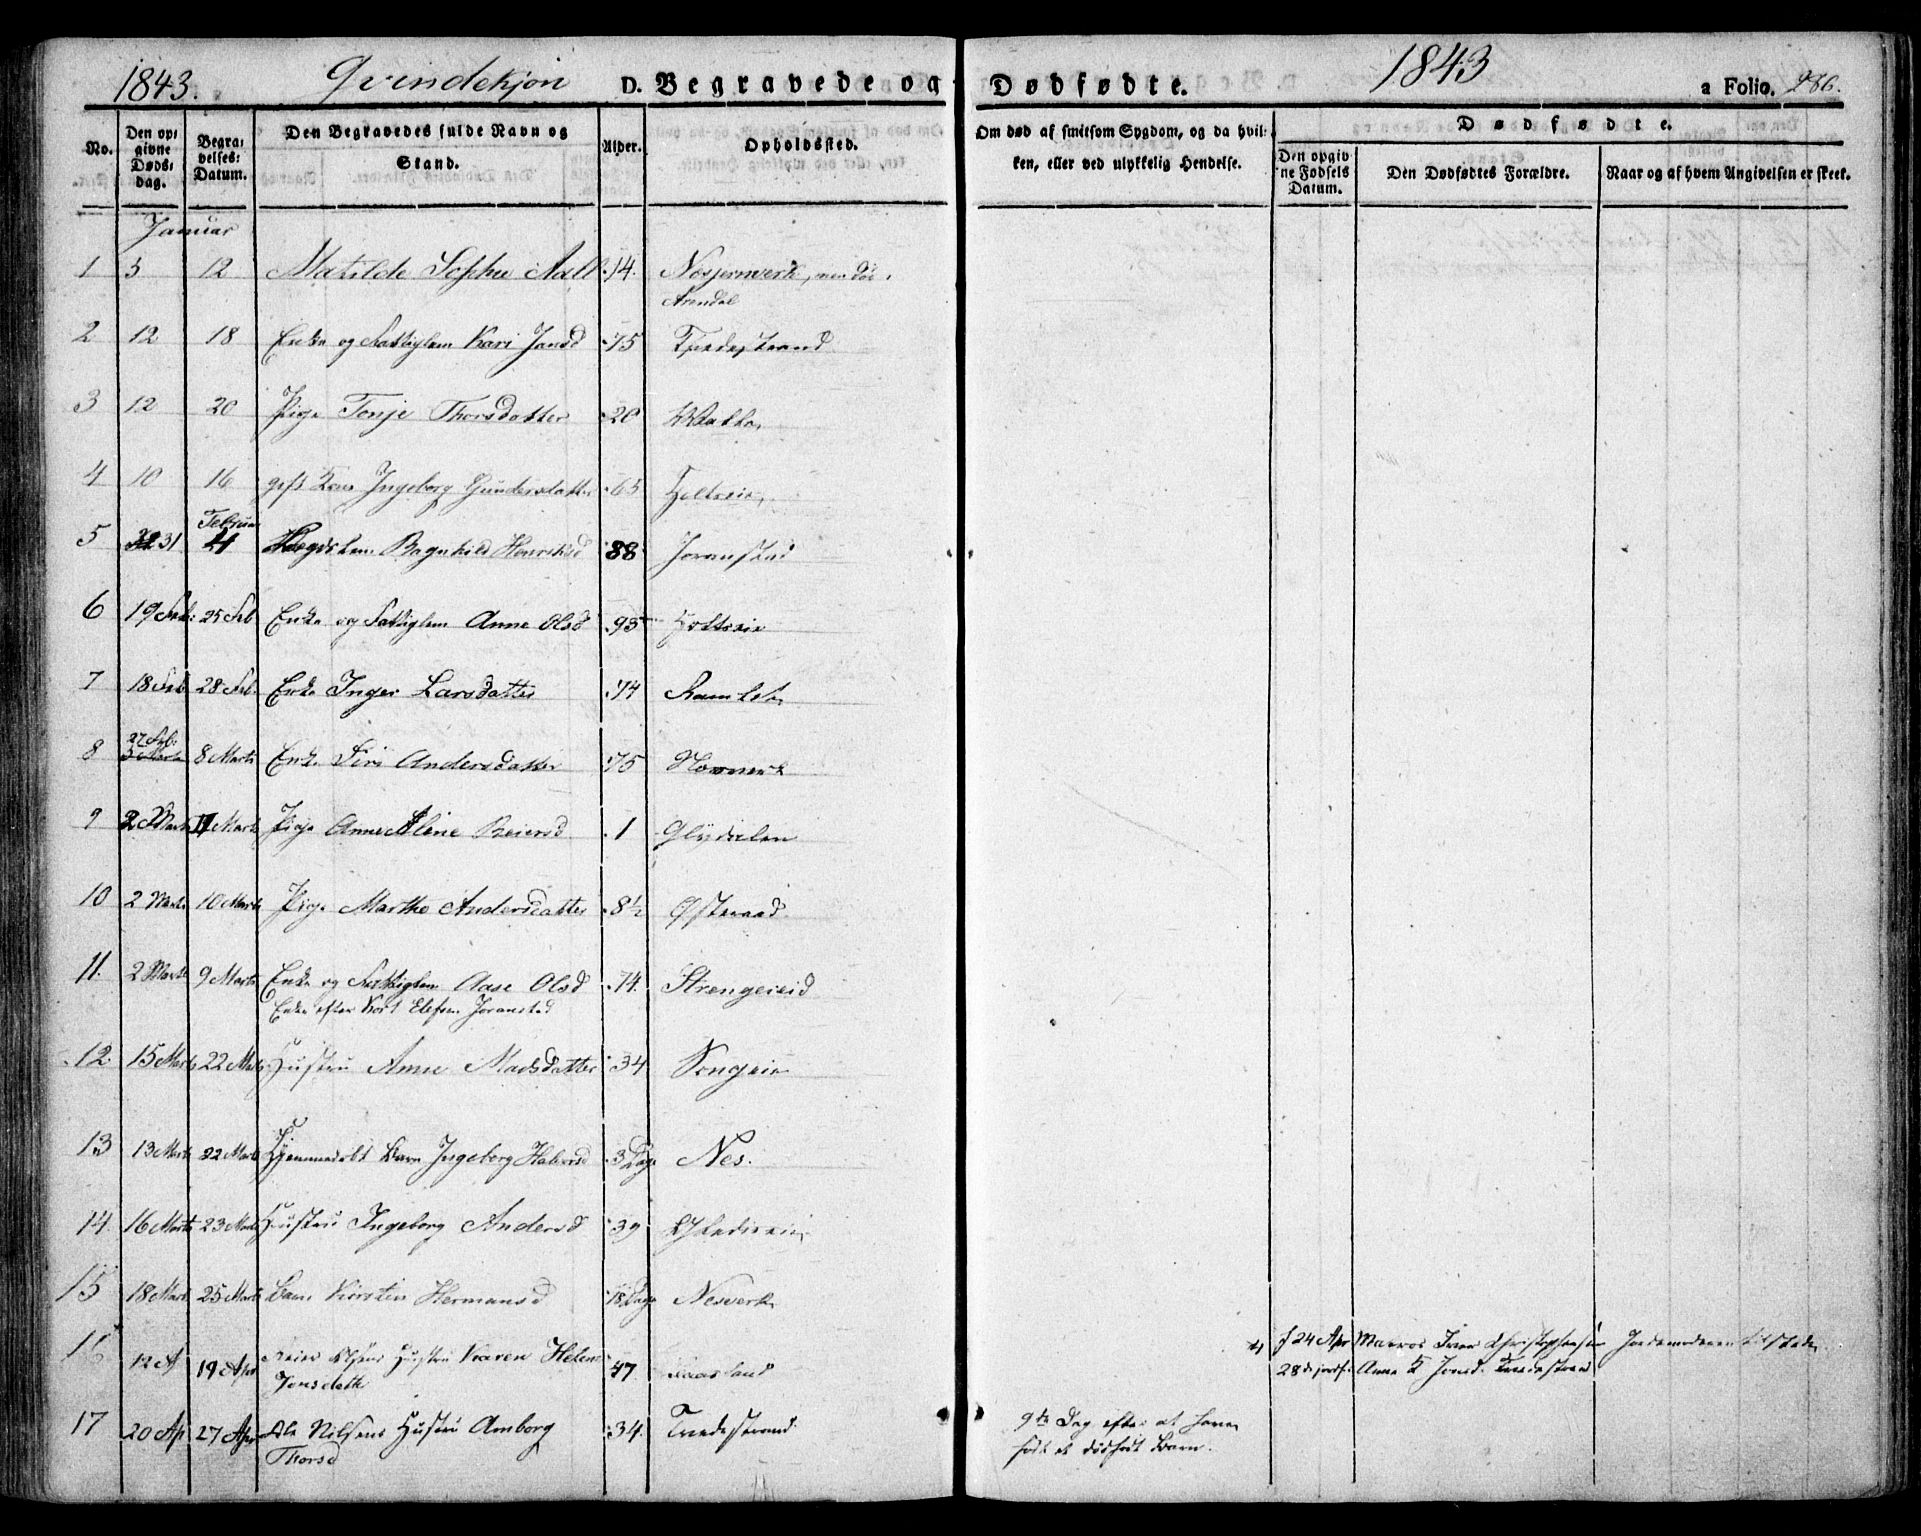 1843. Qvindekjøn D. Begravede og Dødfødte. 1843 a Folio. 286.
No. Den opgivne Døds-dag. Begravelses-Datum. Den Begravedes fulde Navn og Stand. Alder. Opholdssted. Om død af smitsom Sygdom, og da hvilken, eller ved ulykkelig Hendelse. Dødfødte.
Den opgivne Fødsels Datum. Den Dødfødtes Forældre. Naar og af hvem Angivelsen er skeet.
Januar
1 5 12 Matilde Sophie Aall 14. Næsjernverk, men død i
Arendal
2 12 18 Enke og Fattiglem Kari Jansd 75 Tvedestrand
3 12 20 Pige Tonje Thorsdatter 20
4 10 16 Ingeborg Gundersdatter 63 Holtseie
Februar
5 31 4 Lægdslem Ragnhild Henriksd 88 Joranstad
6 19 Feb: 25 Feb Enke og Fattiglem Anne Olsd 93 Holtseie
7 18 Feb 28 Feb. Enke Inger Larsdatter 74 Ramslet
27 Feb.
8 3 Marts 8 Marts Enke Siri Andersdatter 75
9 2 Marts 11 Marts Pige Anne Aline Reiersd 1 Glydalen
10 2 Marts 10 Marts Pige Marthe Andersdatter 8½ Østeraad
11. 2 Marts 9 Marts Enke og Fattiglem Aase Olsd 74. Strengereid
Enke efter Elefsen Joranstad
12. 15 Marts 22 Marts Hustru Anne Madsdatter 34 Songeie
13 13 Marts 22 Marts Hjemmedøbt Barn Ingeborg Halvorsd 3 Dage Nes.
14. 16 Marts 23 Marts Hustru Ingeborg Andersd 39
15 18 Marts 25 Marts Barn Kirsten Hermansd 18 Dage Nesverk
16 12 A 19 Apr Reier Hustru Karen Helene 47
Jonsdatter
f 24 Apr Matros Iver Christophersen Jordemoderen tilstede
28de jordf. Anne K Jonsd. Tvedestrand
17 20 Ap 27 Apr Ole Nilsens Hustru Amborg 34. Tvedestrand 9de Dag efter at have
Thorsd født et dødfødt Barn.